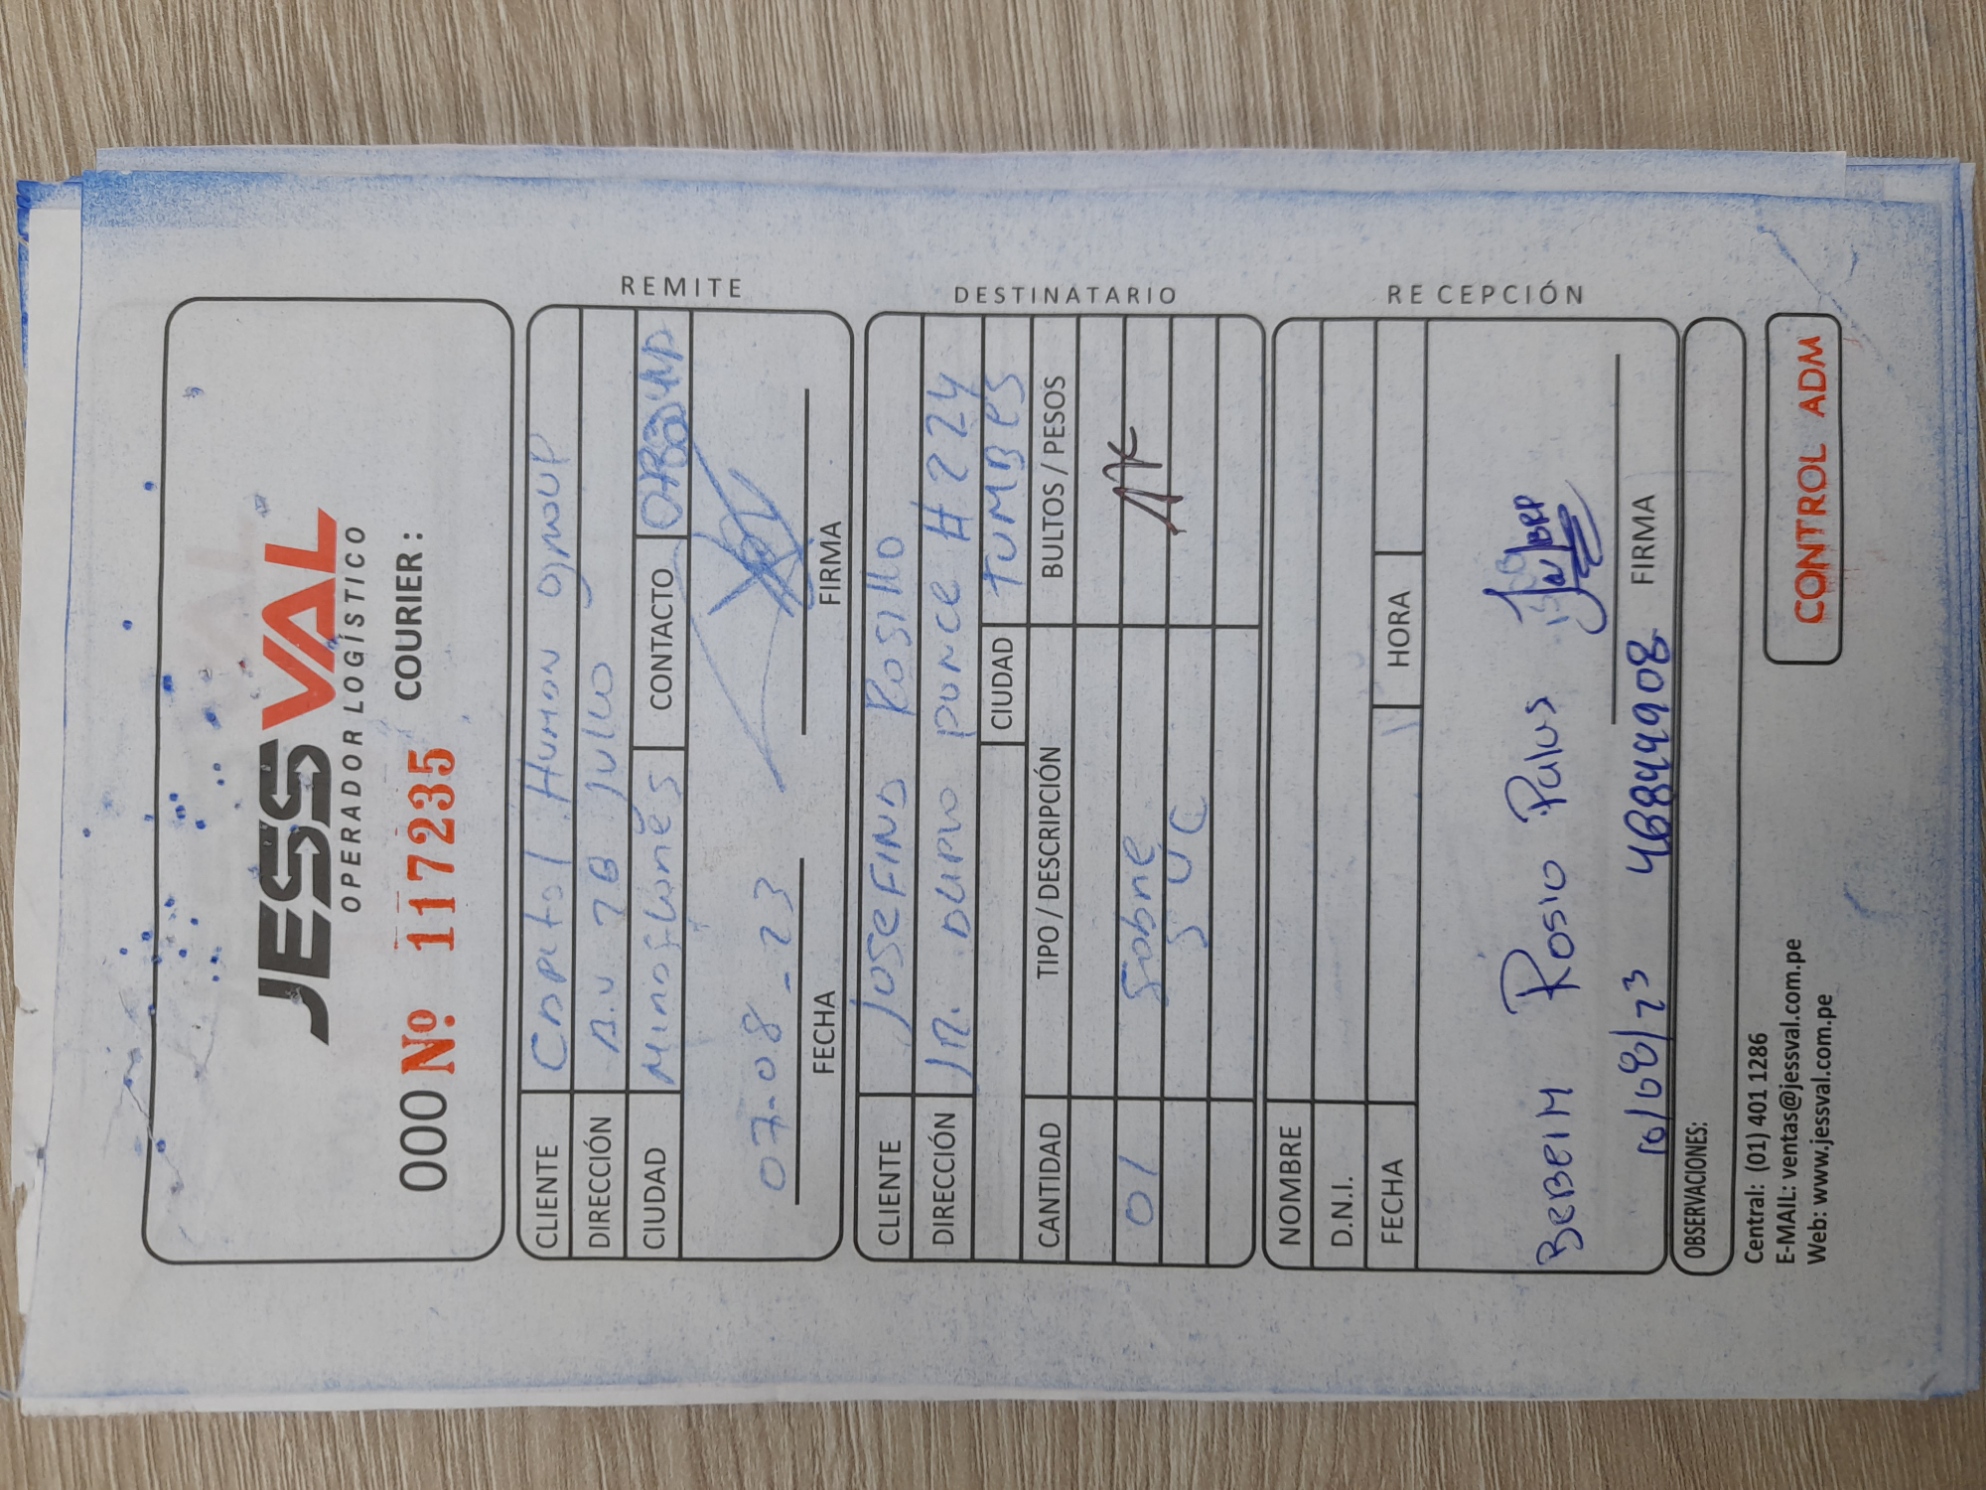 JESSVAL
OPERADOR LOGÍSTICO
000 Nº 117235 COURIER :
REMITE
CLIENTE Capital Human group
DIRECCIÓN A.v 28 Julio
CIUDAD Miraflores CONTACTO
07-08-23
FECHA FIRMA
DESTINATARIO
CLIENTE Josefina Rosillo
DIRECCIÓN JR. ponce #224
CIUDAD TUMBES
CANTIDAD TIPO / DESCRIPCIÓN BULTOS / PESOS
01 Sobre 1K
RECEPCIÓN
NOMBRE
D.N.I.
FECHA HORA
Rosio BRP
10/08/23 46844908 FIRMA
OBSERVACIONES:
Central: (01) 401 1286
E-MAIL: ventas@jessval.com.pe
Web: www.jessval.com.pe
CONTROL ADM